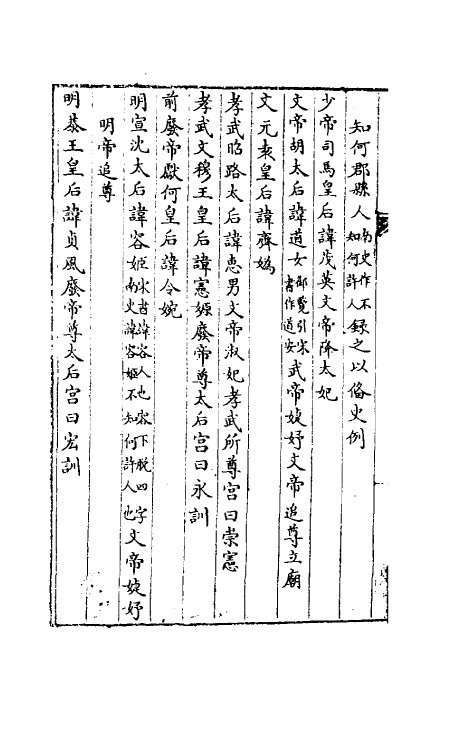 知何郡縣人南史作不知何許人錄之以俻史例
少帝司馬皇后諱茂英文帝降太妃
文帝胡太后諱道女御覽引宋書作道安武帝婕妤文帝追尊立廟
文元袁皇后諱齊媯
孝武昭路太后諱恵男文帝淑妃孝武所尊宮曰崇憲
孝武文穆王皇后諱憲嫄廢帝尊太后宮曰永訓
前廢帝獻何皇后諱令婉
明宣沈太后諱容姬宋書諱容人也容下脫四字南史諱容姬不知何許人也文帝婕妤
明帝追尊
明恭王皇后諱貞風廢帝尊太后宮曰宏訓